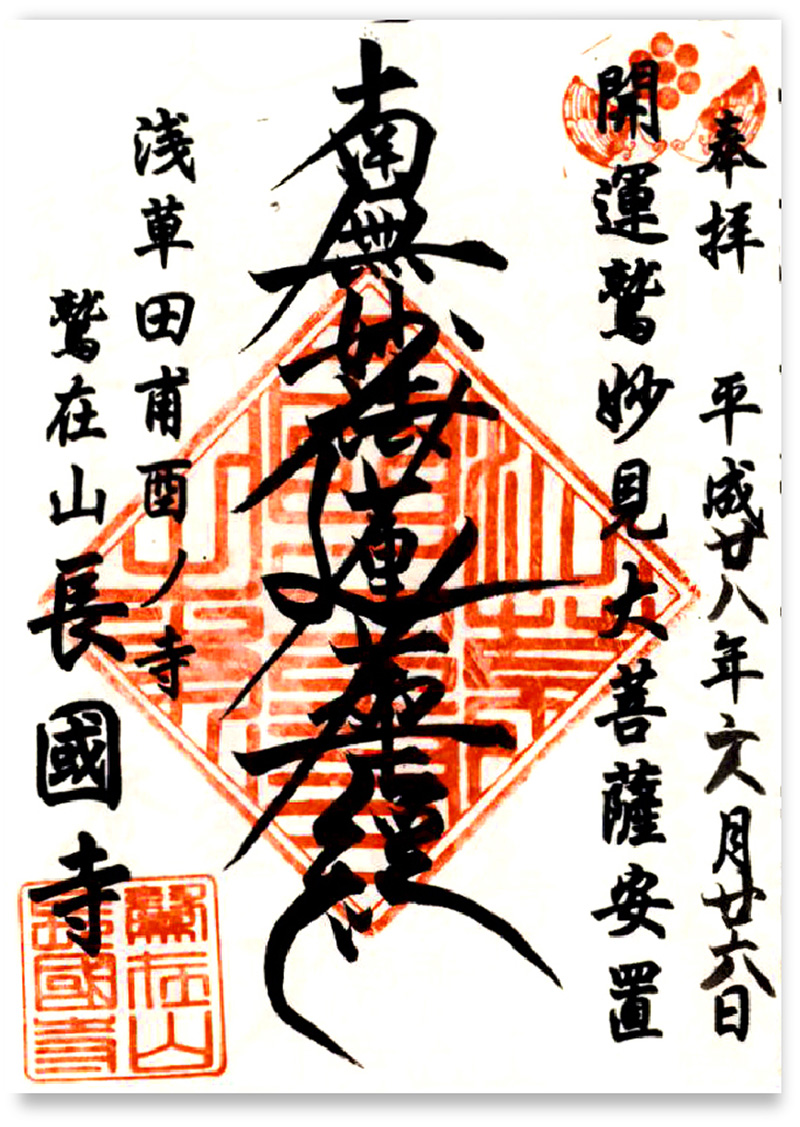 奉拝 平成廿八年六月廿六日
開運鷲妙見大菩薩安置
南無妙法蓮華経
浅草田甫酉ノ寺
鷲在山長國寺
鷲在山
長國寺